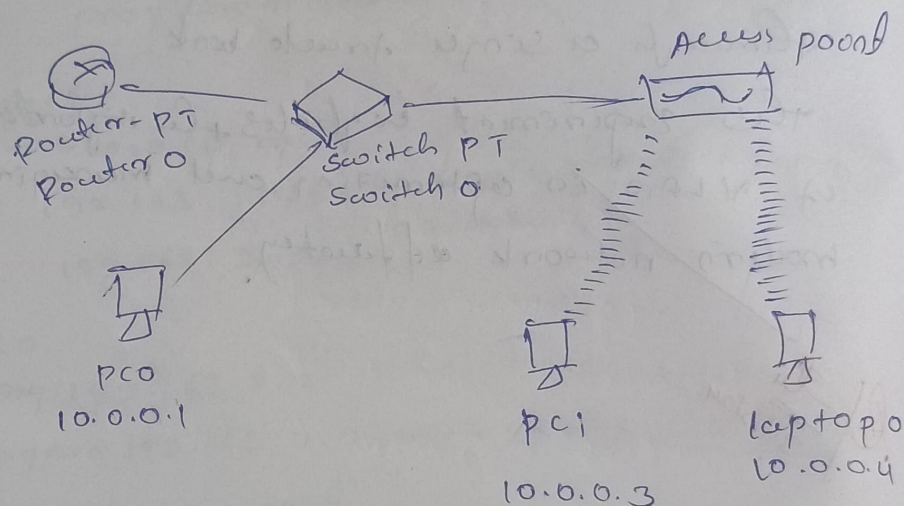 Access poond
Router-PT
Router 0
Switch PT
Switch 0
PC0
10.0.0.1
PCi
10.0.0.3
laptop 0
10.0.0.4